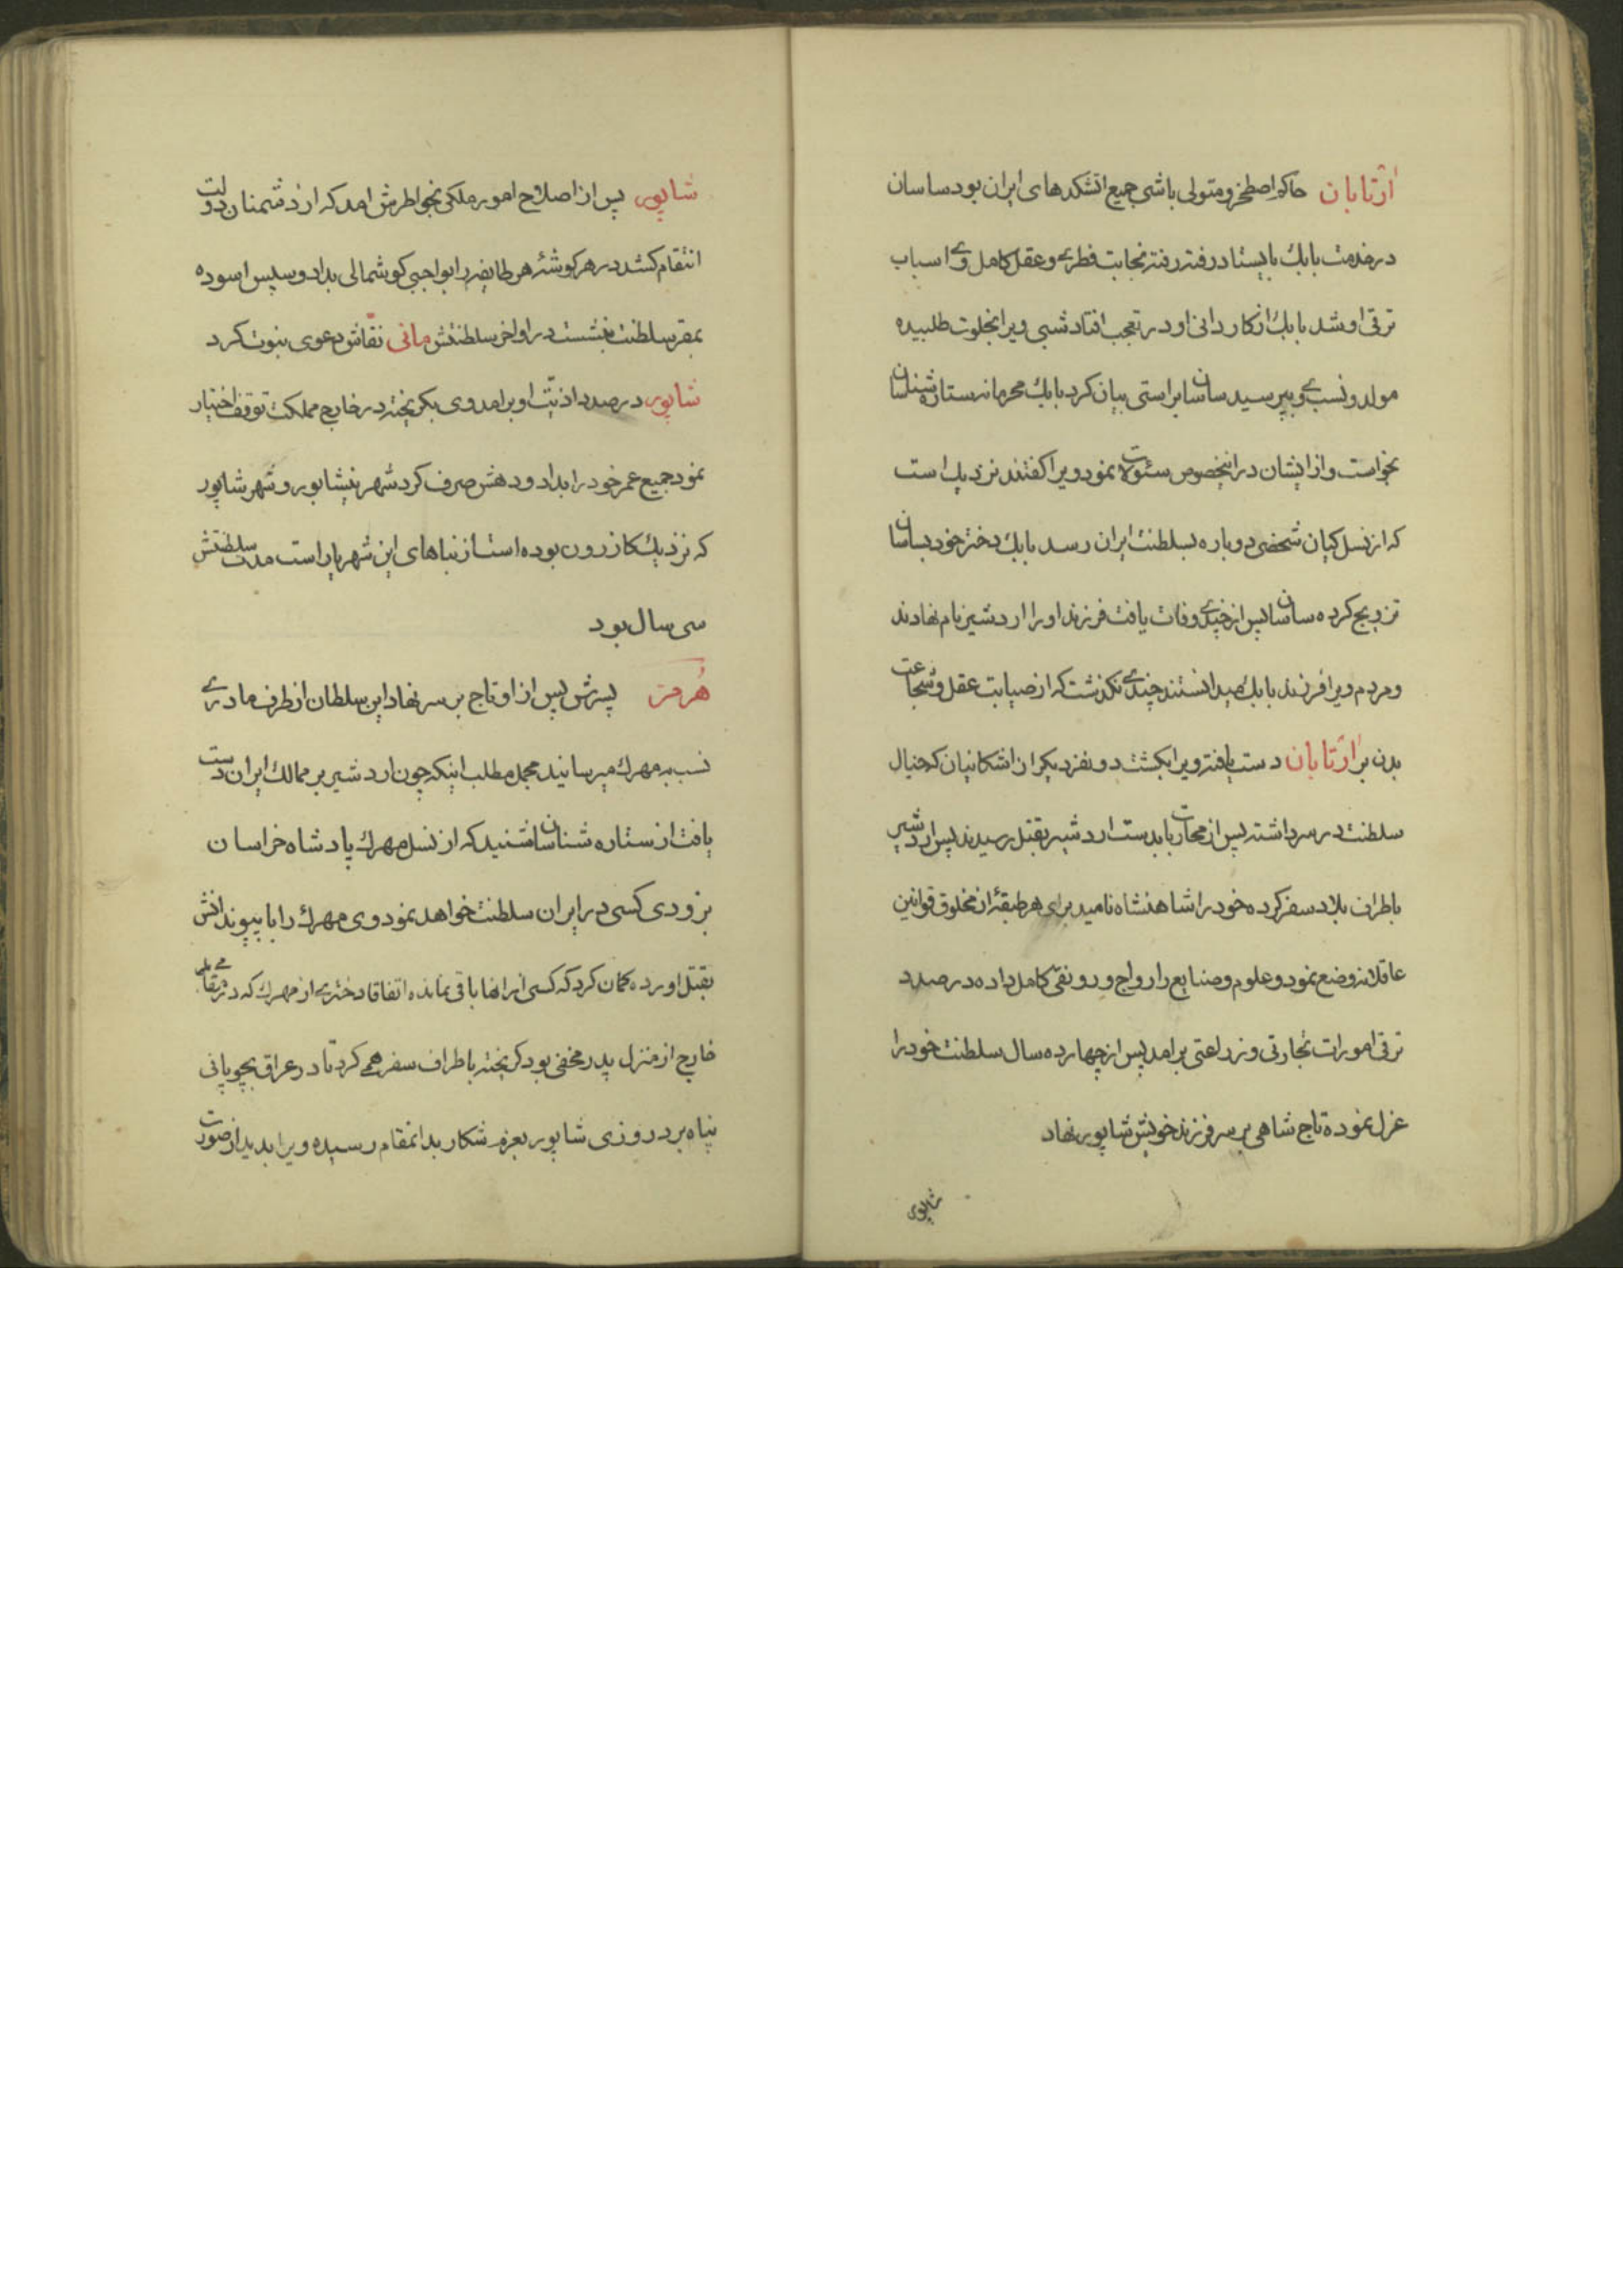 ارتابان حاکم اصطخر و متولی باشی جمیع اتشکدهای ایران بود ساسان
در خدمت بابك بایستاد رفته رفته نجابت فطری و عقل کامل وی اسباب
ترقی او شد بابك از کاردانی او در تعجب افتاد شبی ویرا بخلوت طلبیده
مولد و نسب وی بپرسید ساسان براستی بیان کرد بابك محرمانه ستاره شناسان
بخواست و از ایشان در اینخصوص سئولات نمود ویرا کفتند نزدیك است
که از نسل کیان شخصی دوباره بسلطنت ایران رسد بابك دختر خود بساسان
تزویج کرده ساسان پس از چندی وفات یافت فرزند او را اردشیر نام نهادند
و مردم ویرا فرزند بابك میدانستند چندی نکذشت که از صیابت عقل و شجاعت
بدن بر ارتابان دست یافته ویرا بکشت دو نفر دیکر از اشکانیان که خیال
سلطنت در سر داشته پس از محاربات بدست اردشیر بقتل رسیدند پس اردشیر
باطراف بلاد سفر کرده خود را شاهنشاه نامید برای هر طبقهٔ از مخلوق قوانین
عاقلانه وضع نمود و علوم و صنایع را رواج و رونقی کامل داده در صدد
ترقی امورات تجارتی و زراعتی برامد پس از چهارده سال سلطنت خود را
عزل نموده تاج شاهی بر سر فرزند خویش شاپور نهاد
شاپور
شاپور پس از اصلاح امور ملکی بخواطرش امد که از دشمنان دولت
انتقام کشد در هر کوشهٔ هر طایفه را بواجبی کوشمالی بداد و سپس اسوده
بمقر سلطنت بنشست در اواخر سلطنتش مانی نقاش دعوی نبوت کرد
شاپور در صدد اذیت او برامد وی بکریخته در خارج مملکت توقف اختیار
نمود جمیع عمر خود را بداد و دهش صرف کرد شهر نیشابور و شهر شاپور
که نزدیك کازرون بوده است از بناهای این شهریار است مدت سلطنتش
سی سال بود
هرمز پسرش پس از او تاج بر سر نهاد این سلطان از طرف مادری
نسب به مهرك میرسانید مجمل مطلب اینکه چون اردشیر بر ممالك ایران دست
یافت از ستاره شناسان شنید که از نسل مهرك پادشاه خراسان
بزودی کسی در ایران سلطنت خواهد نمود وی مهرك را با پیوندانش
بقتل اورده کمان کرد که کسی از انها باقی نمانده اتفاقا دختری از مهرك که در مقامی
خارج از منزل پدر مخفی بود کریخته باطراف سفر همی کرد تا در عراق بچوپانی
پناه برد روزی شاپور بعزم شکار بدانمقام رسیده ویرا بدید از صورت